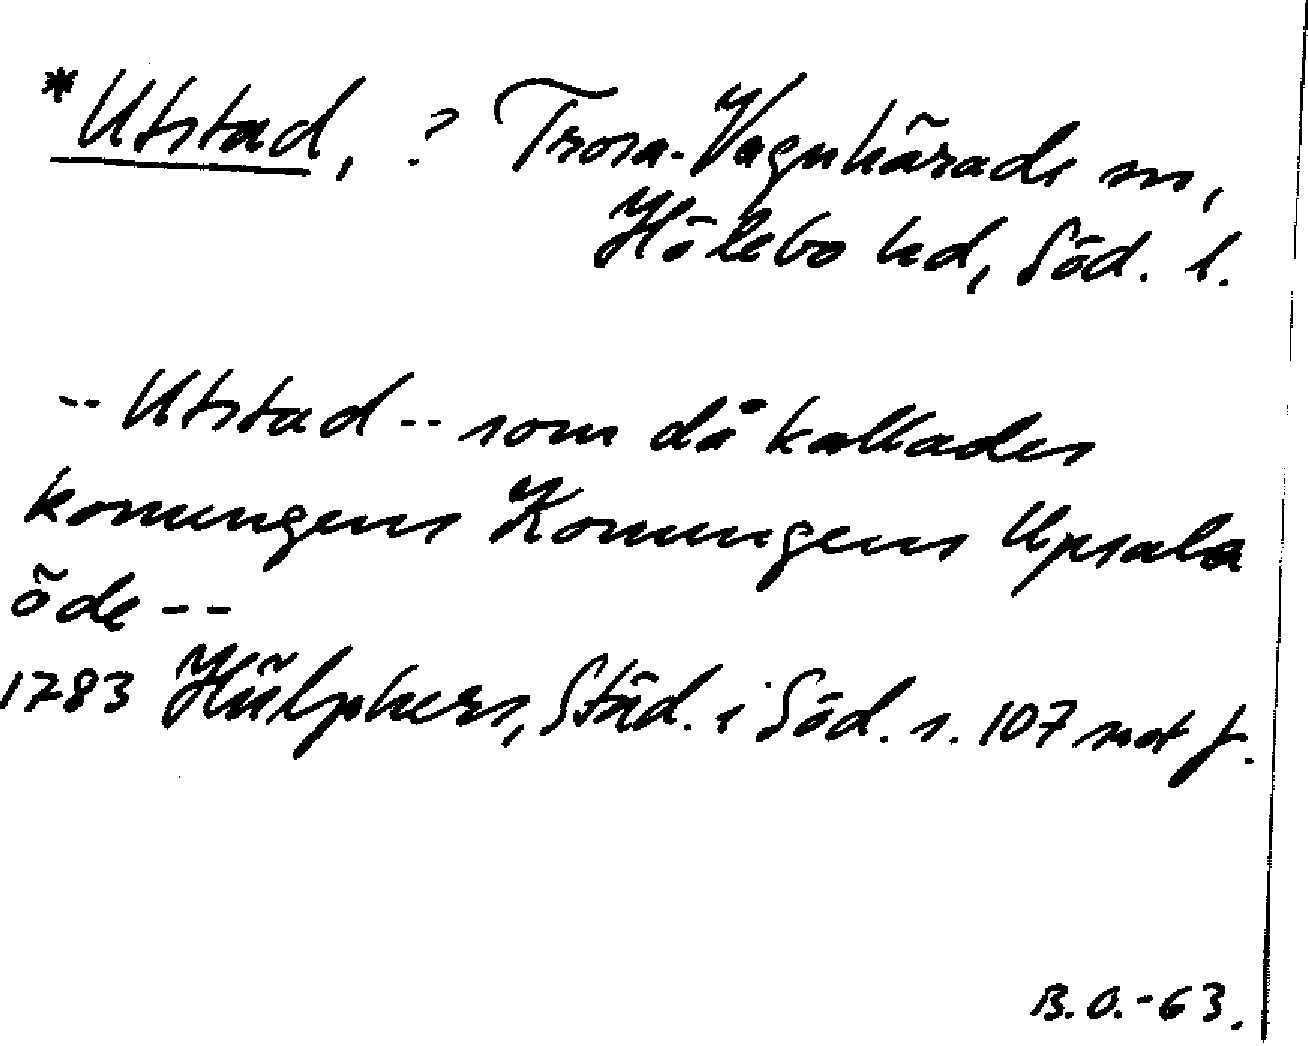 *Utstad, ? Trosa-Vagnhärads sn,
Hölebo hd, Söd. l.
-- Utstad -- som då kallades
konungens Konungens Upsala
öde --
1783 Hülphers, Städ. i Söd. s. 107 not f.
B.O.-63.